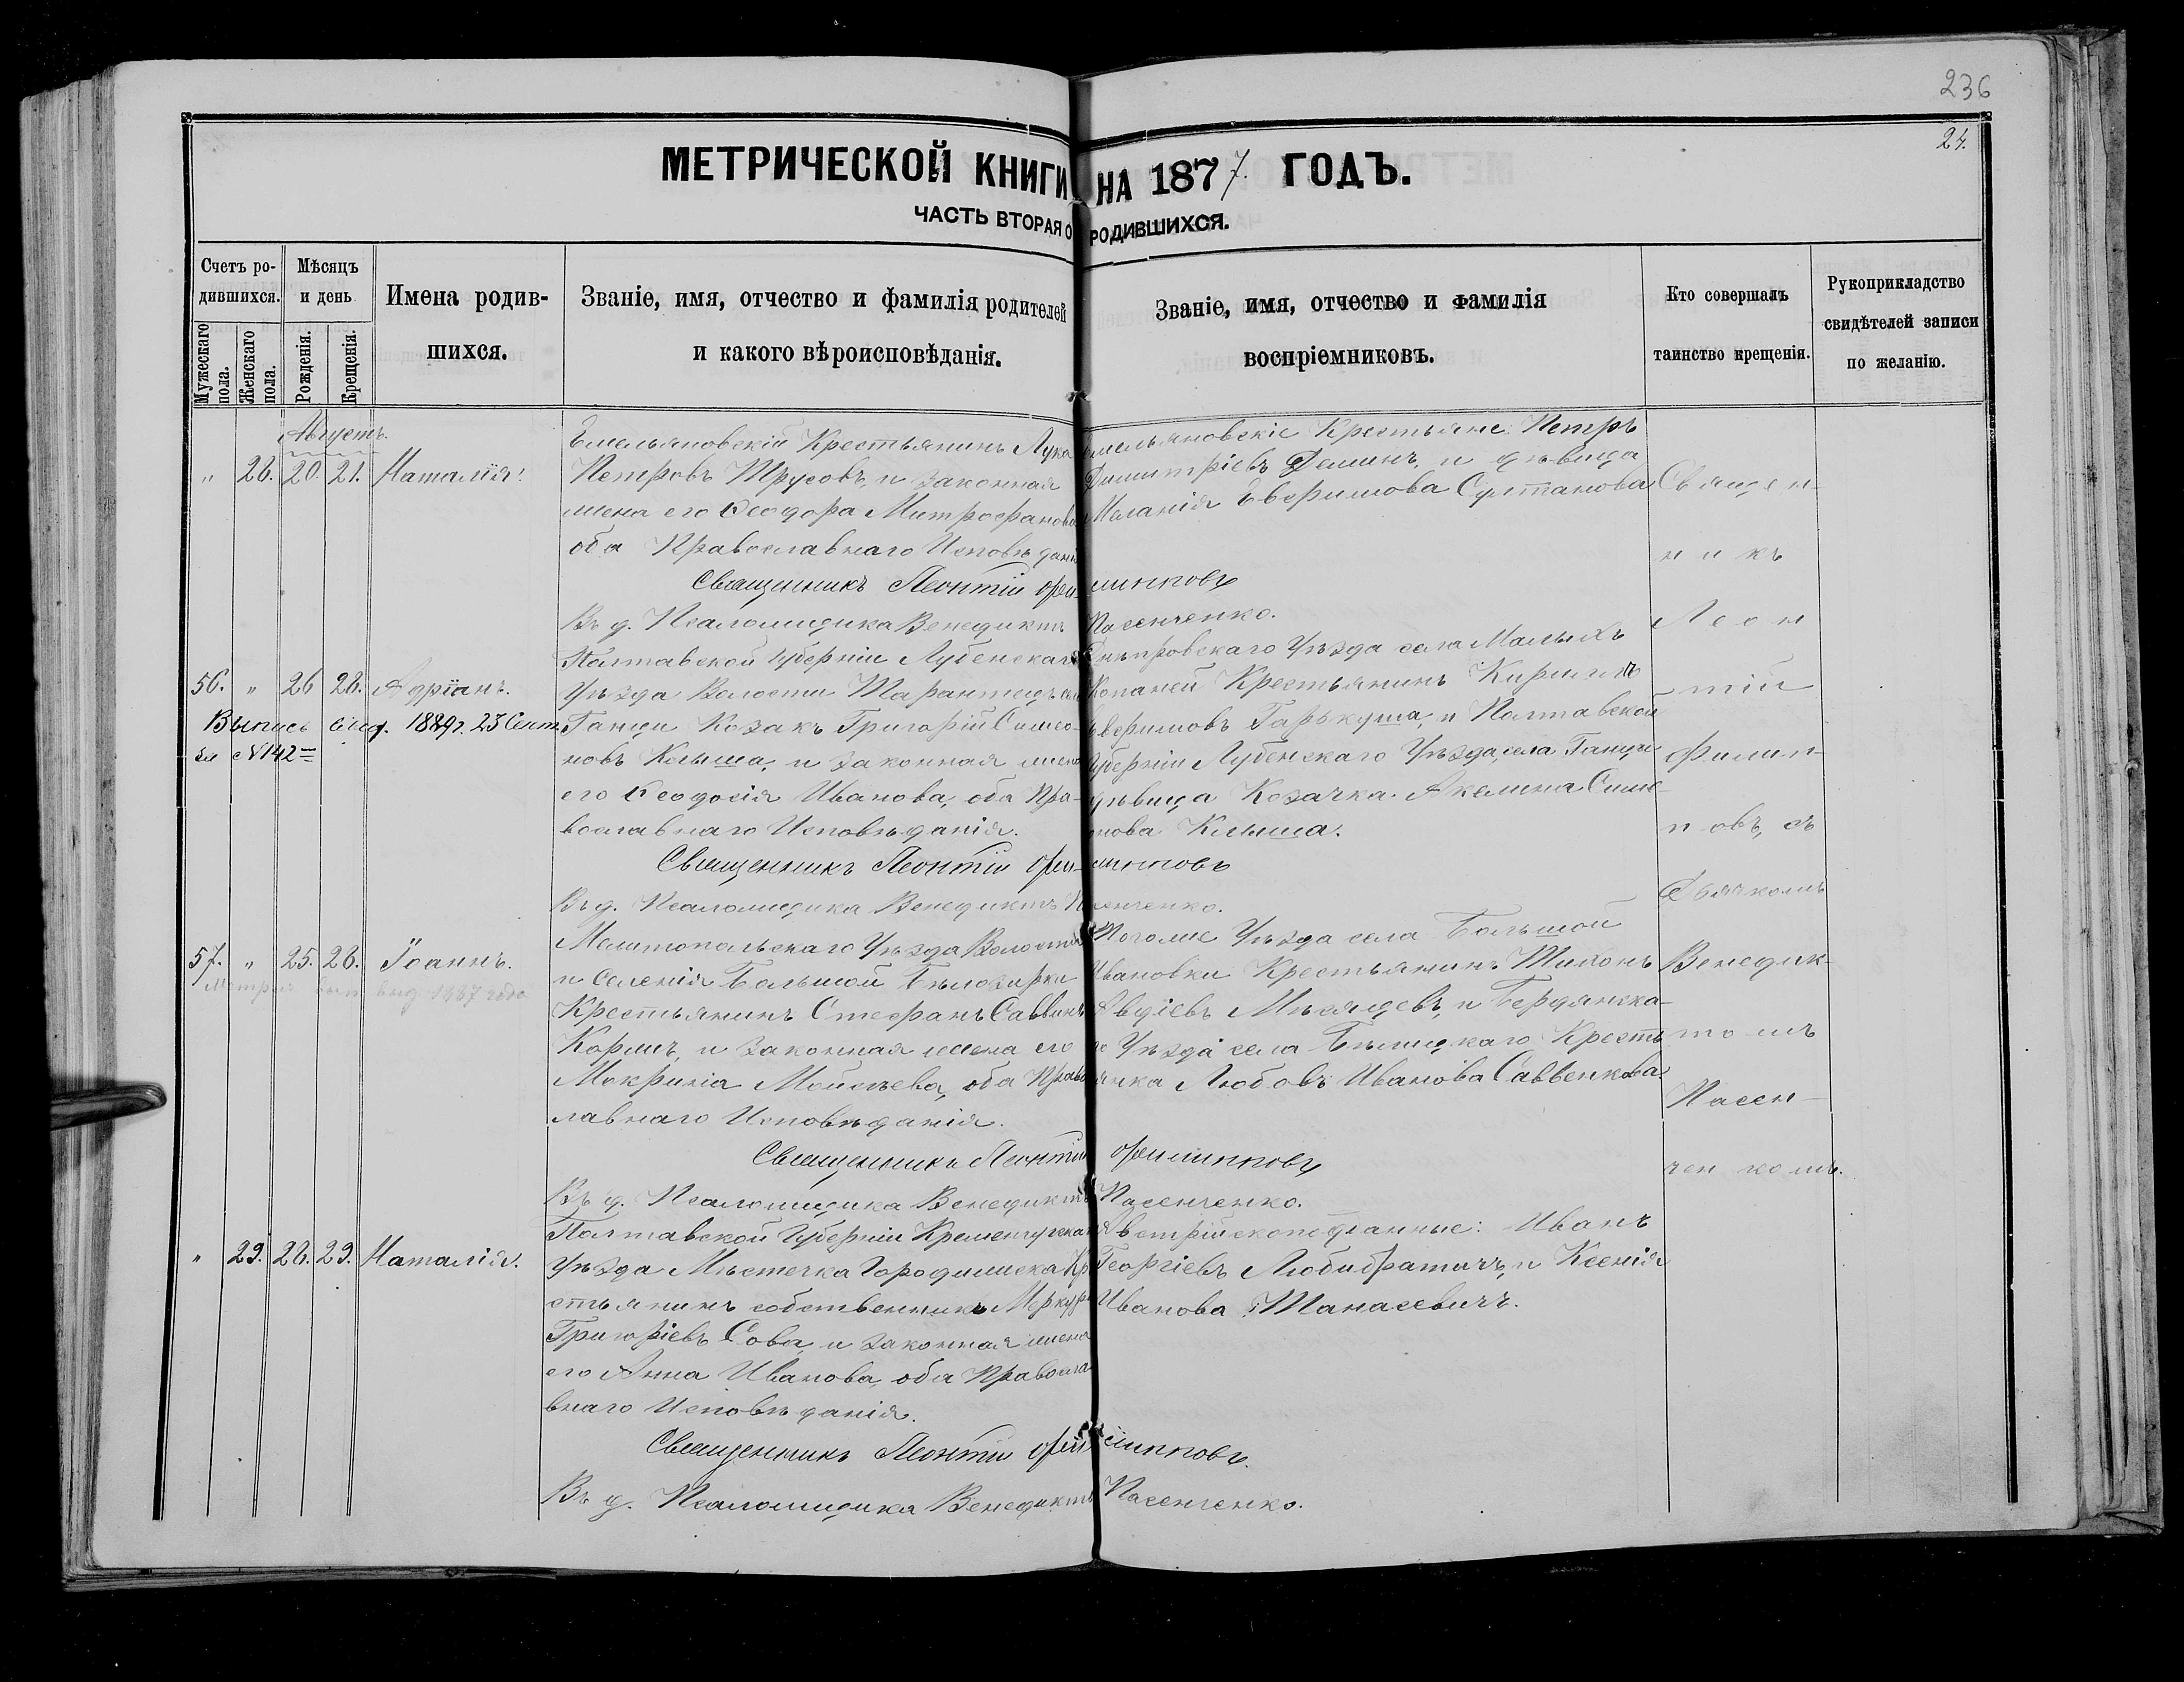 236
24.
МЕТРИЧЕСКОЙ КНИГИ НА 1877. ГОДЪ.
ЧАСТЬ ВТОРАЯ О РОДИВШИХСЯ.
Счетъ родившихся.
Мужескаго пола.
Женскаго пола.
Мѣсяцъ и день
Рожденія.
Крещенія.
Имена родив-
шихся.
Званіе, имя, отчество и фамилія родителей
и какого вѣроисповѣданія.
Званіе, имя, отчество и фамилія
воспріемниковъ.
Кто совершалъ
таинство крещенія.
Рукоприкладство
свидѣтелей записи
по желанію.
Августъ.
" 26. 20. 21. Наталія.
Емельяновскій Крестьянинъ Лука
Петровъ Трусовъ, и законная
жена его Ѳеодора Митрофанова
оба Православнаго Исповѣданія
Священникъ Леонтій Филипповъ
Въ д. Псаломщика Венедиктъ Пасенченко.
Емельяновскіе Крестьяне Петръ
Димитріевъ Деминъ, и дѣвица
Меланія Евфимова Султанова
56. " 26 28. Адріанъ.
Выпись выд. 1889г. 23 Сент.
за №142
Полтавской Губерніи Лубенскаго
Уѣзда Волости Тарантецъ села
Ганци Козакъ Григорій Симео-
новъ Клыша, и законная жена
его Ѳеодосія Иванова, оба Пра-
вославнаго Исповѣданія.
Священникъ Леонтій Филипповъ
Въ д. Псаломщика Венедиктъ Пасенченко.
Днѣпровскаго Уѣзда села Малыхъ
Копаней Крестьянинъ Кириллъ
Евфимовъ Гарькуша, и Полтавской
Губерніи Лубенскаго Уѣзда, села Ганци
дѣвица Козачка Акелина Симе-
онова Клыша.
57. " 25. 26. Іоаннъ.
Метрич. выд. 1887 года
Мелитопольскаго Уѣзда Волости
и Селенія Большой Бѣлозирки
Крестьянинъ Стефанъ Саввинъ
Кармъ, и законная жена его
Макринія Мойсѣева, оба Право-
лавнаго Исповѣданія.
Священникъ Леонтій Филипповъ
Въ д. Псаломщика Венедиктъ Пасенченко.
Тогоже Уѣзда села Большой
Ивановки Крестьянинъ Тихонъ
Авдіевъ Мѣсяцевъ, и Бердянска-
го Уѣзда села Крестья
янка Любовъ Иванова Саввенкова.
" 29. 26. 29. Наталія.
Полтавской Губерніи Кременчугскаго
Уѣзда Мѣстечка Городишска Кре
стьянинъ собственникъ Меркур
Григоріевъ Сова, и законная жена
его Анна Иванова, оба Правосла
внаго Исповѣданія.
Священникъ Леонтій Филипповъ.
Въ д. Псаломщика Венедиктъ Пасенченко.
Австрійскоподданные: Иванъ
Георгіевъ Любибратичъ, и Ксенія
Иванова Танасевичъ.
Священ-
никъ
Леон
тій
Филип-
повъ, съ
Дьячкомъ
Венедик-
томъ
Пасен-
ченкомъ.